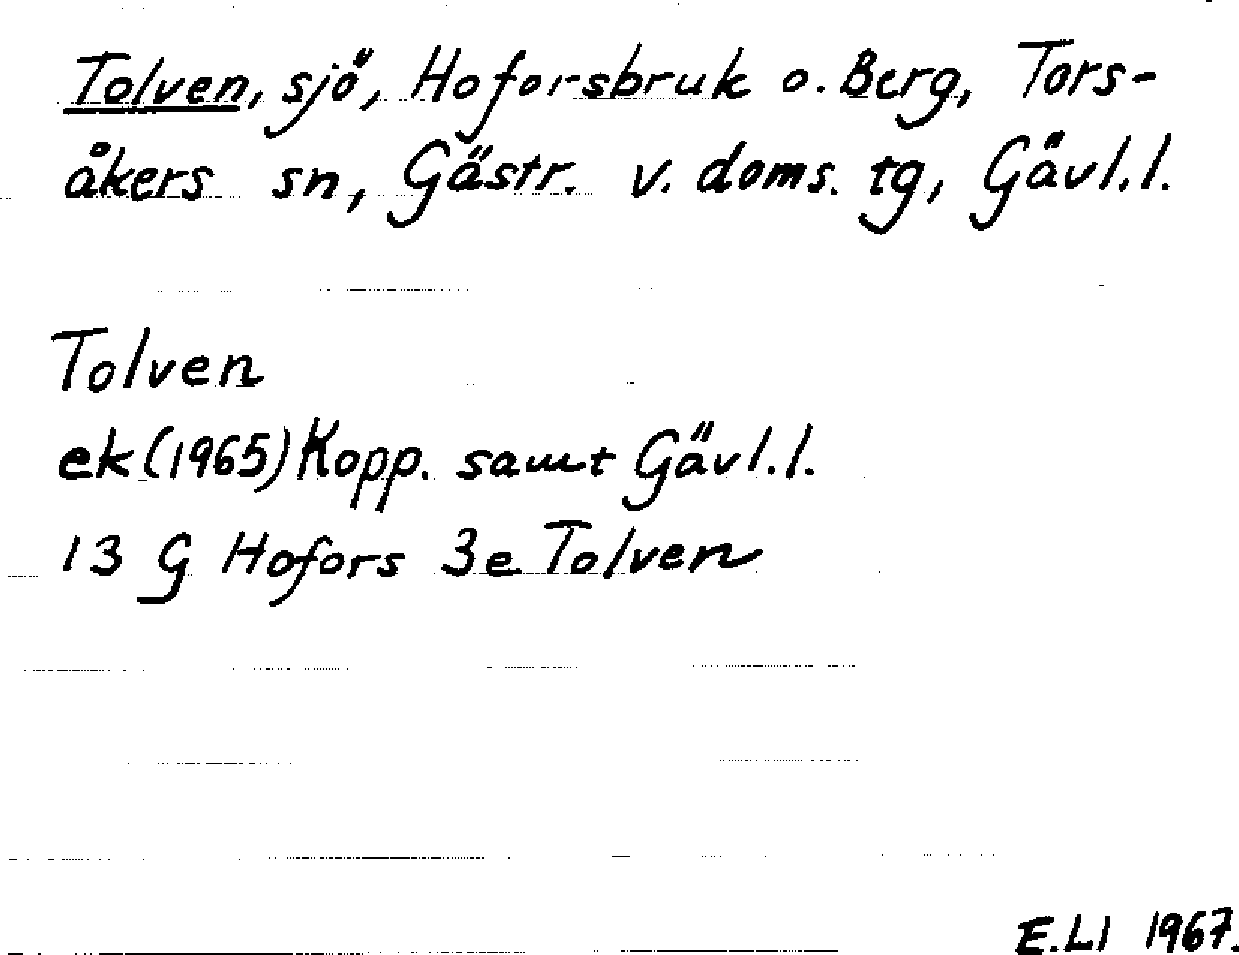 Tolven, sjö, Hoforsbruk o. Berg, Tors-
åkers sn, Gästr. v. doms. tg, Gävl.l.
Tolven
ek (1965) Kopp. samt Gävl.l.
13 G Hofors 3e Tolven
E.Ll 1967.